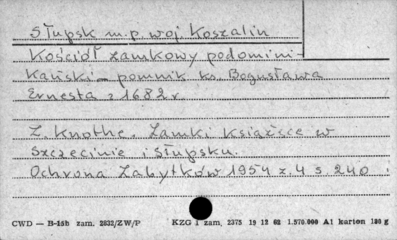 Słupsk m.p. woj. Koszalin
Kościół zamkowy podomini-
kański – pomnik ks. Bogusława
Ernesta z 1682 r.
Z. Knothe. Zamki książęce w
Szczecinie i Słupsku.
Ochrona Zabytków 1954 z. 4 s 240
CWD — B-15h zam. 2832/ZW/P KZG 1 zam. 2375 19 12 62 1.570.000 A1 karton 180 g